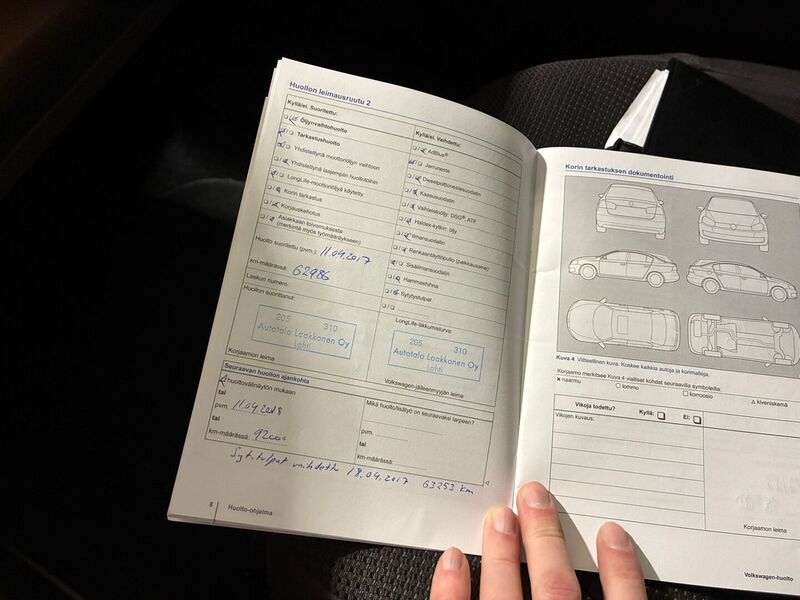 Huollon leimausruutu 2
Kyllä/ei. Suoritettu:
Öljynvaihtohuolto
Tarkastushuolto
Yhdistettynä moottoriöljyn vaihtoon
Yhdistettynä laajempiin huoltotoihin
LongLife-moottoriöljyä käytetty
Korin tarkastus
Korjauskehotus
Asiakkaan toivomuksesta
(merkintä myös työmääräykseen)
Huolto suoritettu (pvm.) 11.04.2017
km-määrässä: 62986
Laskun numero:
Huollon suorittanut:
205 310
Autotalo Laakkonen Oy
Lahti
Korjaamon leima
Kyllä/ei. Vaihdettu:
AdBlue®
Jarruneste
Dieselpolttonestesuodatin
Kaasusuodatin
Vaihteistoöljy: DSG®, ATF
Haldex-kytkin: öljy
Ilmansuodatin
Renkaantäyttöpullo (paikkausaine)
Sisäilmansuodatin
Hammashihna
Sytytystulpat
LongLife-liikkumisturva:
205 310
Autotalo Laakkonen Oy
Lahti
Volkswagen-jälleenmyyjän leima
Seuraavan huollon ajankohta
huoltovälinäytön mukaan
tai
pvm. 11.04.2018
tai
km-määrässä: 92000
Mikä huolto/lisätyö on seuraavaksi tarpeen?
pvm.
tai
km-määrässä:
Syt.tulpat vaihdettu 18.04.2017 63253 km
8 Huolto-ohjelma
Korin tarkastuksen dokumentointi
Kuva 4 Viitteellinen kuva. Koskee kaikkia autoja ja korimalleja.
Korjaamo merkitsee Kuva 4 vialliset kohdat seuraavilla symboleilla:
× naarmu ○ lommo □ korroosio △ kiveniskemä
Vikoja todettu? Kyllä: Ei:
Vikojen kuvaus:
Korjaamon leima
Volkswagen-huolto